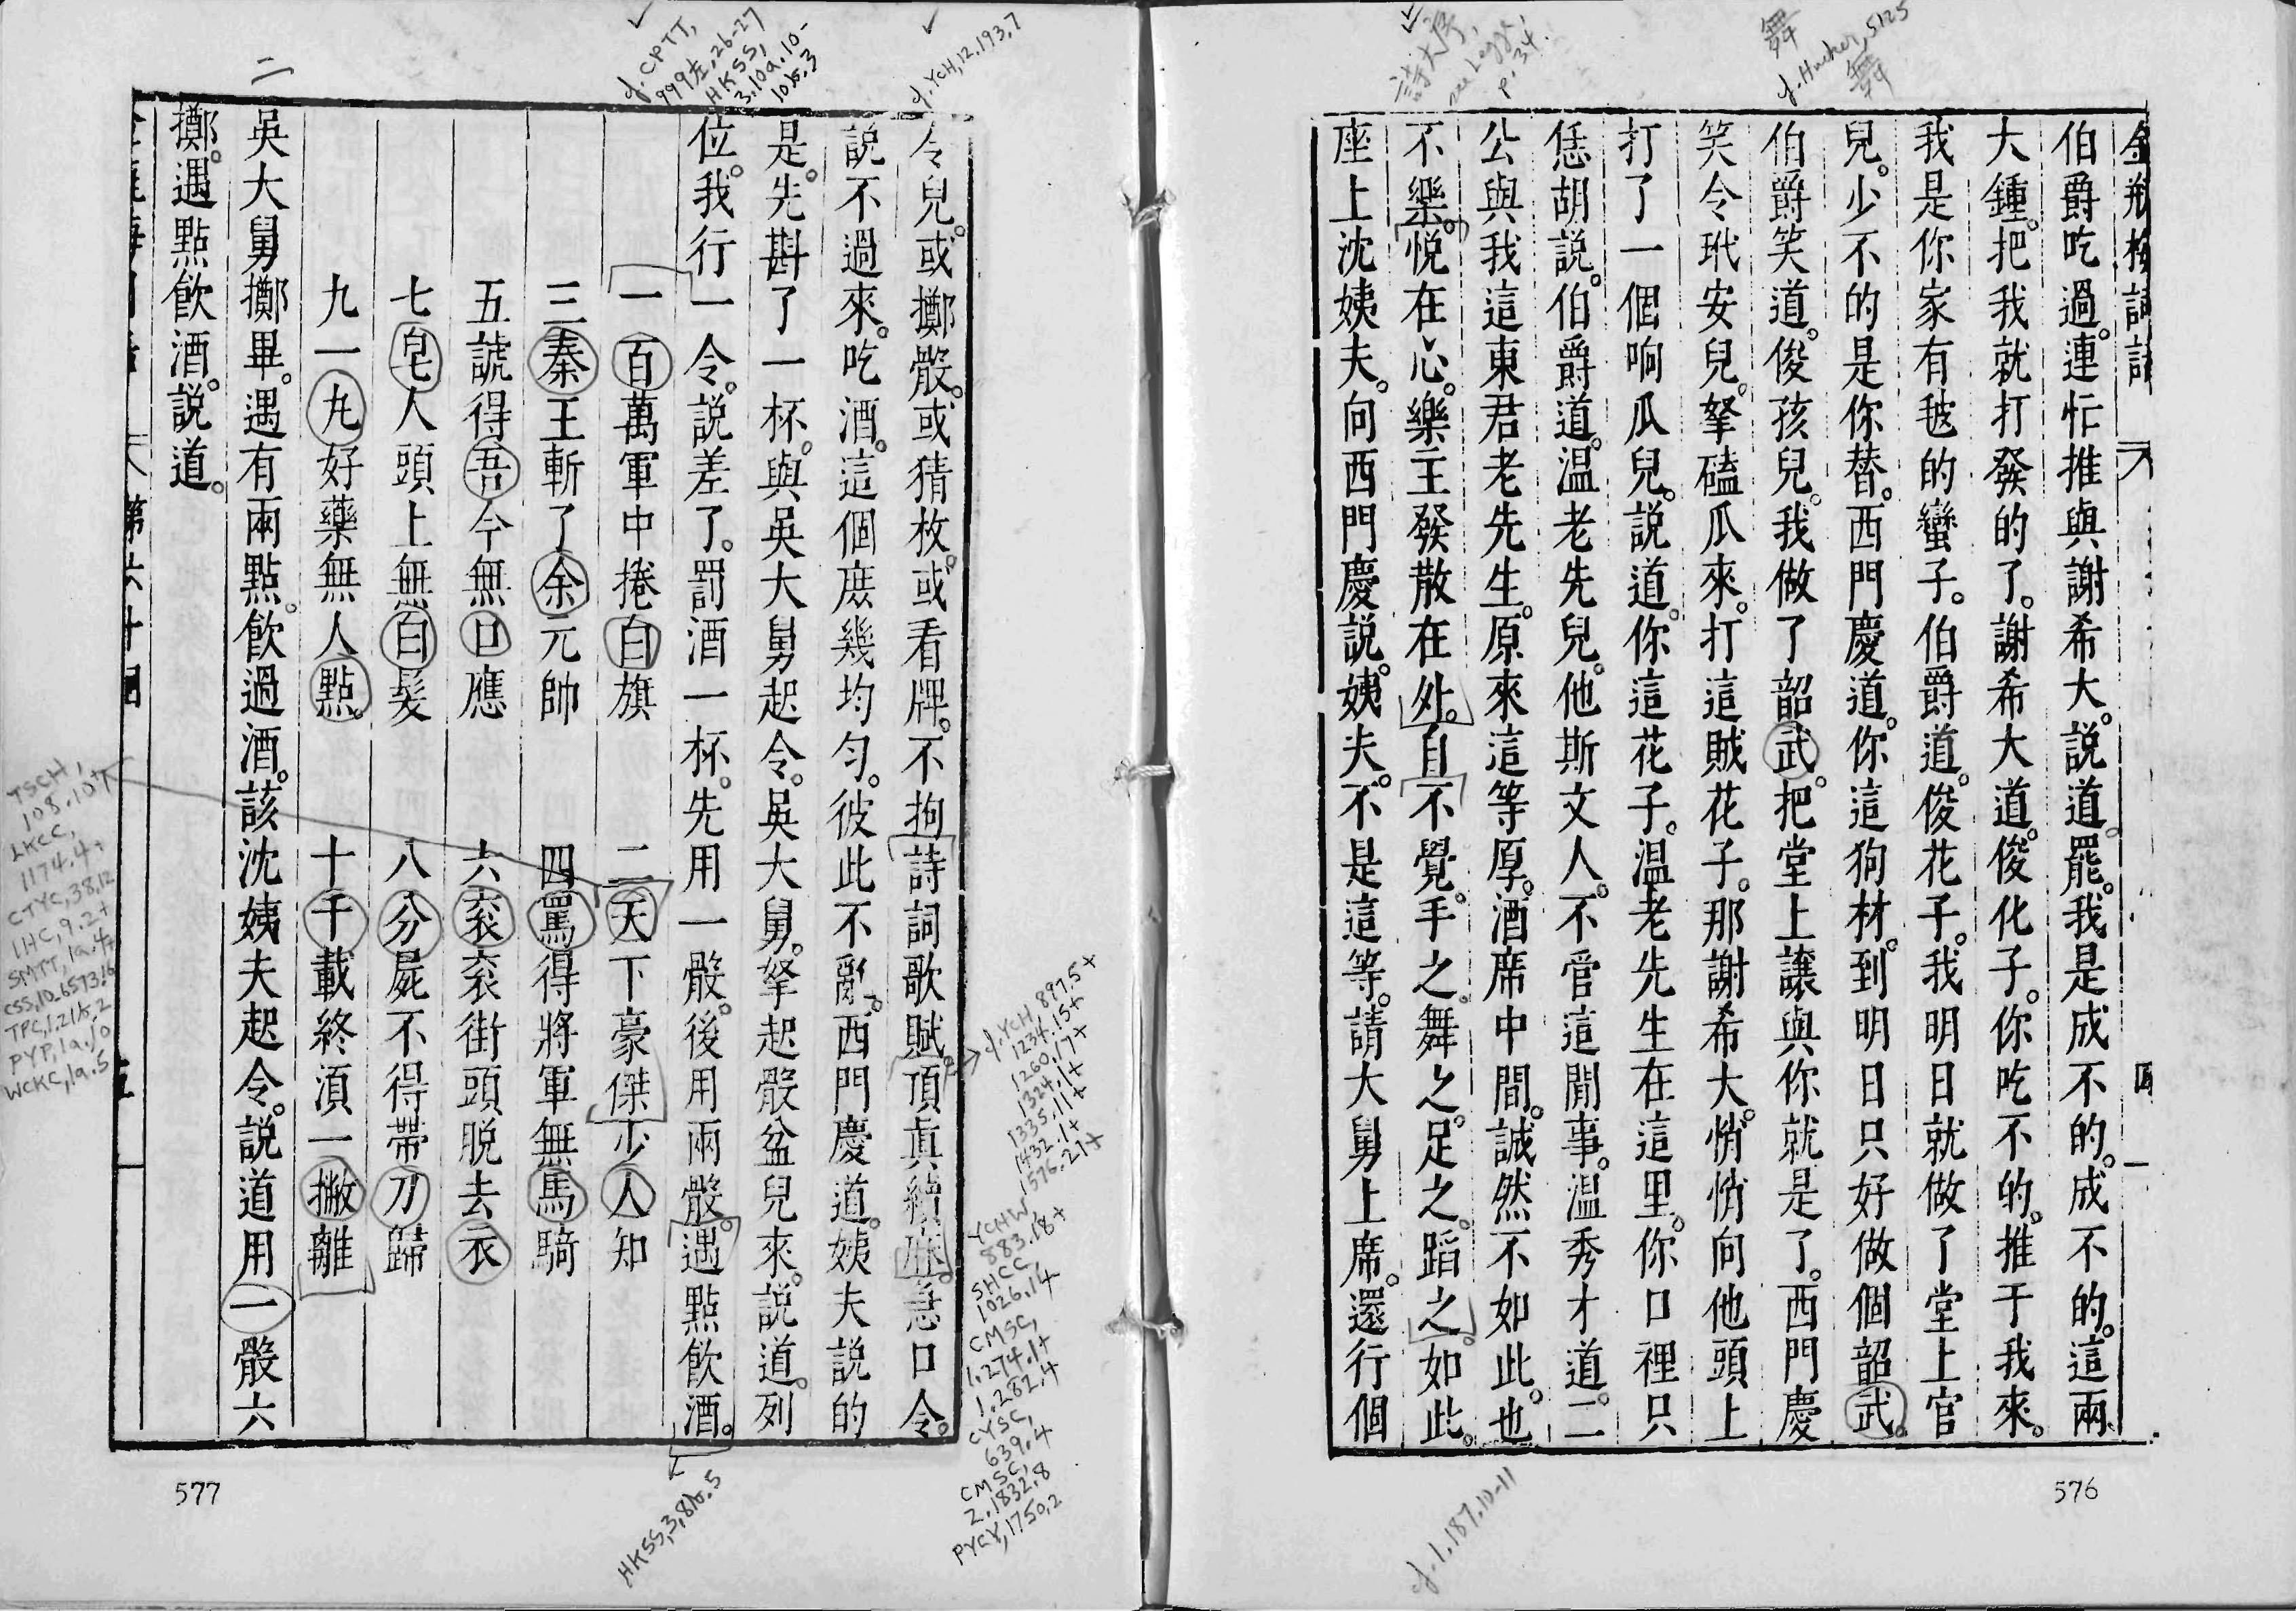 金瓶梅詞話
伯爵吃過。連忙推與謝希大。說道。罷。我是成不的。成不的。這兩
大鍾。把我就打發的了。謝希大道。俊化子。你吃不的。推于我來。
我是你家有毬的蠻子。伯爵道。俊花子。我明日就做了堂上官
兒。少不的是你替。西門慶道。你這狗材。到明日只好做個韶武。
伯爵笑道。俊孩兒。我做了韶武。把堂上讓與你就是了。西門慶
笑令玳安兒。拏磕瓜來。打這賊花子。那謝希大。悄悄向他頭上
打了一個响瓜兒。說道。你這花子。温老先生在這里。你口裡只
恁胡說。伯爵道。温老先兒。他斯文人。不管這閒事。溫秀才道。二
公與我這東君老先生。原來這等厚。酒席中間。誠然不如此。也
不樂。悅在心。樂主發散在外。自不覺。手之。舞之。足之。蹈之。如此。
座上沈姨夫。向西門慶說。姨夫。不是這等。請大舅上席。還行個
576
令兒。或擲骰。或猜枚。或看牌。不拘詩詞歌賦。頂眞續麻。急口令。
說不過來。吃酒。這個庶幾均勻。彼此不亂。西門慶道。姨夫說的
是。先斟了一杯。與吳大舅起令。吳大舅。拏起骰盆兒來。說道。列
位。我行一令。說差了。罰酒一杯。先用一骰。後用兩骰。遇點飲酒。
一百萬軍中捲白旗 二天下豪傑少人知
三秦王斬了余元帥 四罵得將軍無馬騎
五諕得吾今無口應 六衮衮街頭脫去衣
七皂人頭上無白髮 八分屍不得帶刀歸
九一丸好藥無人點。 十千載終湏一撇離
吳大舅擲畢。遇有兩點。飲過酒。該沈姨夫起令。說道用一骰六
擲。遇點飲酒。說道。
第六十
五
577
舞
cf. Hucker, 5125
舞
詩大序,
see Legge,
p. 34.
cf. 1.187.10-11
cf. YCH, 12.193.7
cf. CPTT,
999左, 26-27
HKSS,
3.10a.10-
10b.3
二
cf. YCH, 897.5+
1234.15+
1260.17+
1324.1+
1335.11+
1432.1+
1576.21+
YCHW,
883.18+
SHCC,
1026.14
CMSC,
1.274.1+
1.282.4
CYSC,
639.4
CMSC,
2.1832.8
PYCY, 1750.2
HKSS, 3.8b.5
TSCH,
108.10+
LKCC,
1174.4+
CTYC, 38.12
LHC, 9.2+
SMTT, 1a.4+
CSS, 10.6573.6
TPC, 1.21b.2
PYP, 1a.10
WCKC, 1a.5